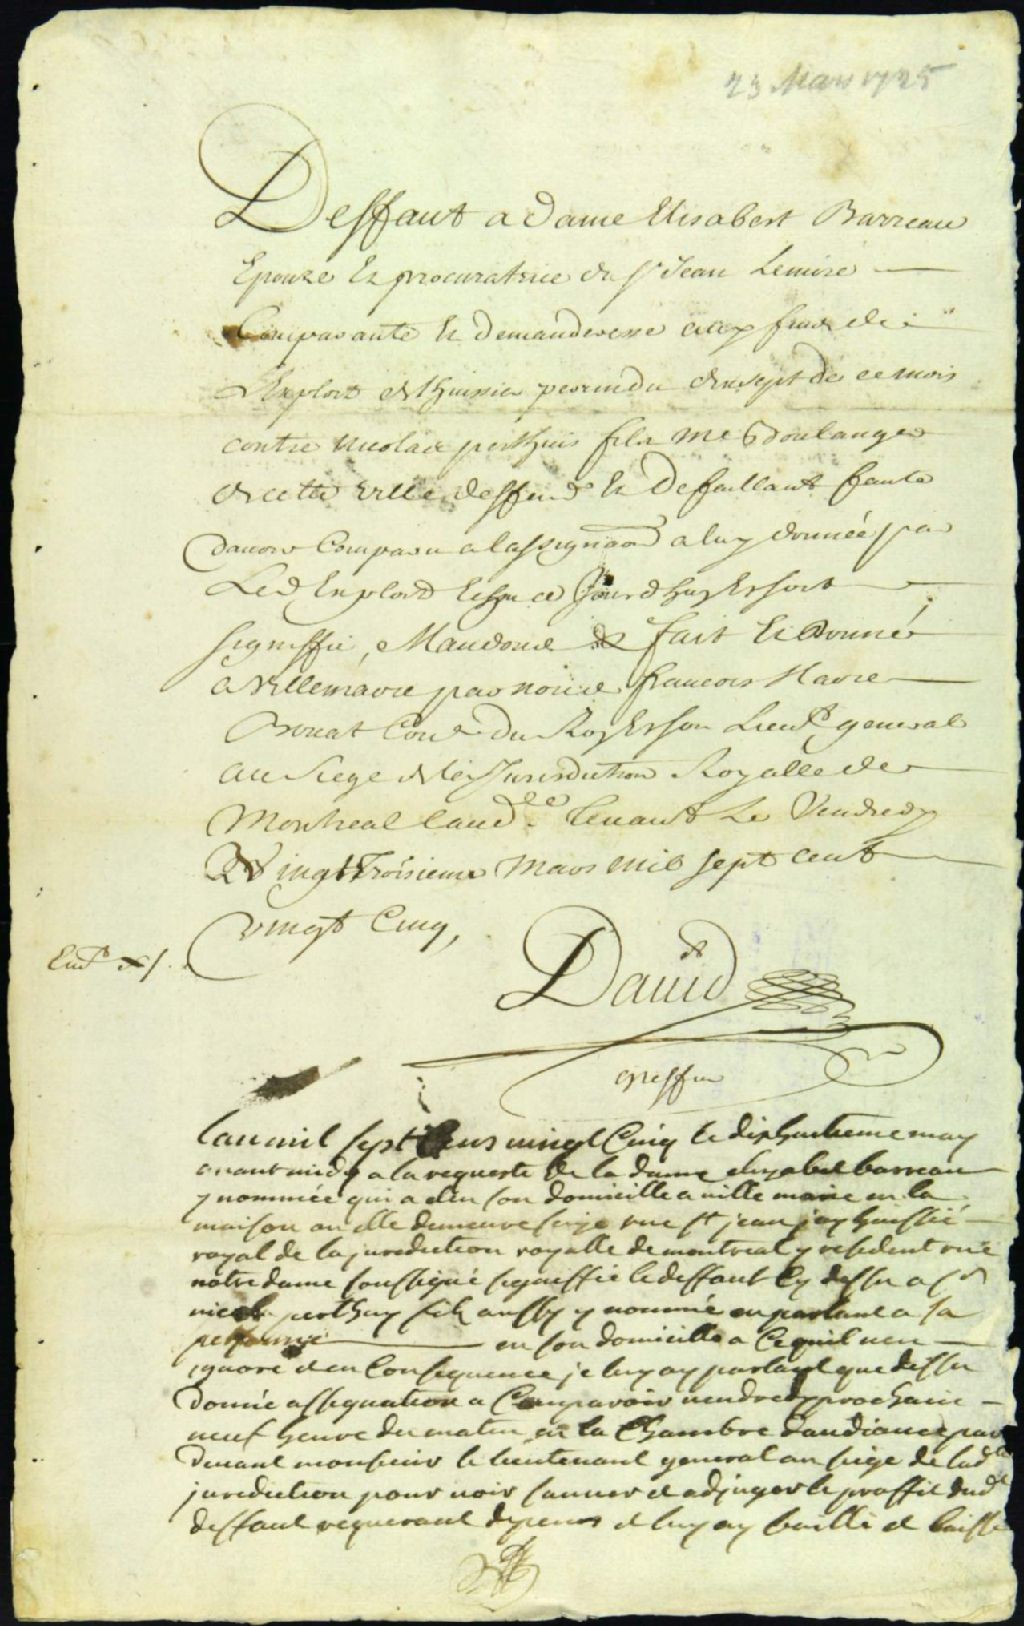 23 Mars 1725
Deffaut a dame Elisabert Barreau
Epouze Et procuratrice du Sr Jean Lemire
Comparante Et demanderesse aux fins de
L'Exploit de huissier du sept de ce mois
contre Nicolas perthuis fils Me Boulanger
de cette ville deffend Et Defaillant faute
davoir Comparu a lassignaon a luy donnée par
Led Exploit Ce jourdhuy Et soit
signiffié, Mandons &c fait Et Donné
a Villemarie par nous francois Marie
Bouat Coner du Roy Et son Lieut general
au siege de la Jurisdiction Royalle de
Montreal laudce tenant Le Vendredy
Vingt Troisieme Mars mil sept cent
vingt Cinq,
David
greffier
lan mil sept Cens vingt Cinq le dixhuitieme may
avant midy a la requeste de la dame elizabel barreau
y nommée qui a elu son domicille a ville marie en la
maison ou elle demeure size rue st jean jay huissié
royal de la juridiction royalle de montreal y resident rue
notre dame soussigné signiffié le deffaut Cy dessu a Sr
nicolas perthuy fils aussy y nommé en parlant a sa
personne en son domicille a Ce quil nen
ignore et en Consequence je luy ay parlant que dessu
donné assignation a Comparoir vendredy prochain
neuf heure du matin en la Chambre daudiance par
devant monsieur le lieutenant general au siege de lad
juridiction pour voir et adjuger le proffit dud
deffaut requerant depens et luy ay baillé et laissé